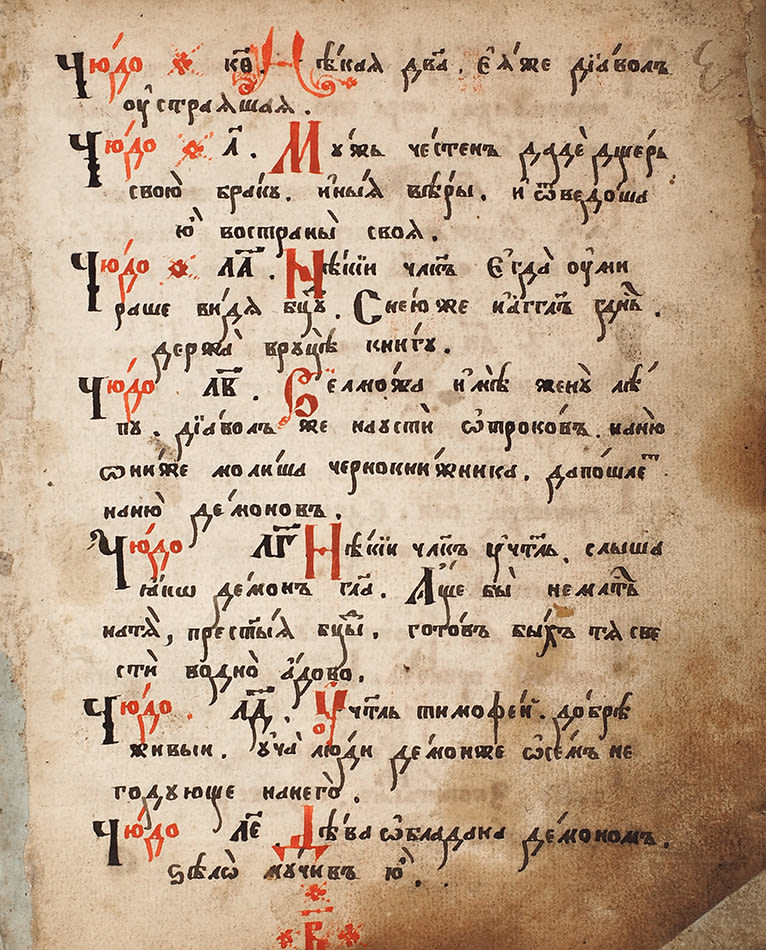 Чю́до кѳ҃. Нѣ́кая два҃. Ея́же дїа́волъ
оу҆страяшая.
Чю́до л҃. Му́жъ че́стенъ дадѐ дще́рь
свою̀ бра́ку. и҆ны́я вѣ́ры. и҆ ѿведо́ша
ю҆̀ востраны̀ своя̀.
Чю́до ла҃. Нѣ́кїи члк҃ъ Е҆гда̀ оу҆ми
раше ви́дя бцу҃. Снею́же и҆а҆гг҃лъ гд҃нь.
держа̀ вруцѣ̀ кни́гу.
Чю́до лв҃. Велмо́жа и҆мѣ̀ жену̀ лѣ́
пу. дїа́волъ же наустѝ ѻ҆́троковъ наню̀
ѡ҆ни́же моли́ша чернокни́жника. дапо́шлет
наню̀ де́моновъ.
Чю́до лг҃ Нѣ́кїи члк҃ъ у҆чт҃ль. слыша
ꙗ҆́кѡ де́монъ гл҃а. А҆́ще бы̀ нема́ть
натя̀, прест҃ы́я бц҃ы. гото́въ бы́хъ тя све
стѝ водно̀ а҆́дово.
Чю́до лд҃. Учт҃ль тимофе́й. до́брѣ
живыи. у҆ча̀ лю́ди де́мон же ѡ҆ се́мъ не
году́юще нанего̀.
Чю́до ле҃. Дѣ́ва ѡ҆блада́на де́мономъ.
ѕѣлѡ̀ му́чивъ ю҆̀.
в҃